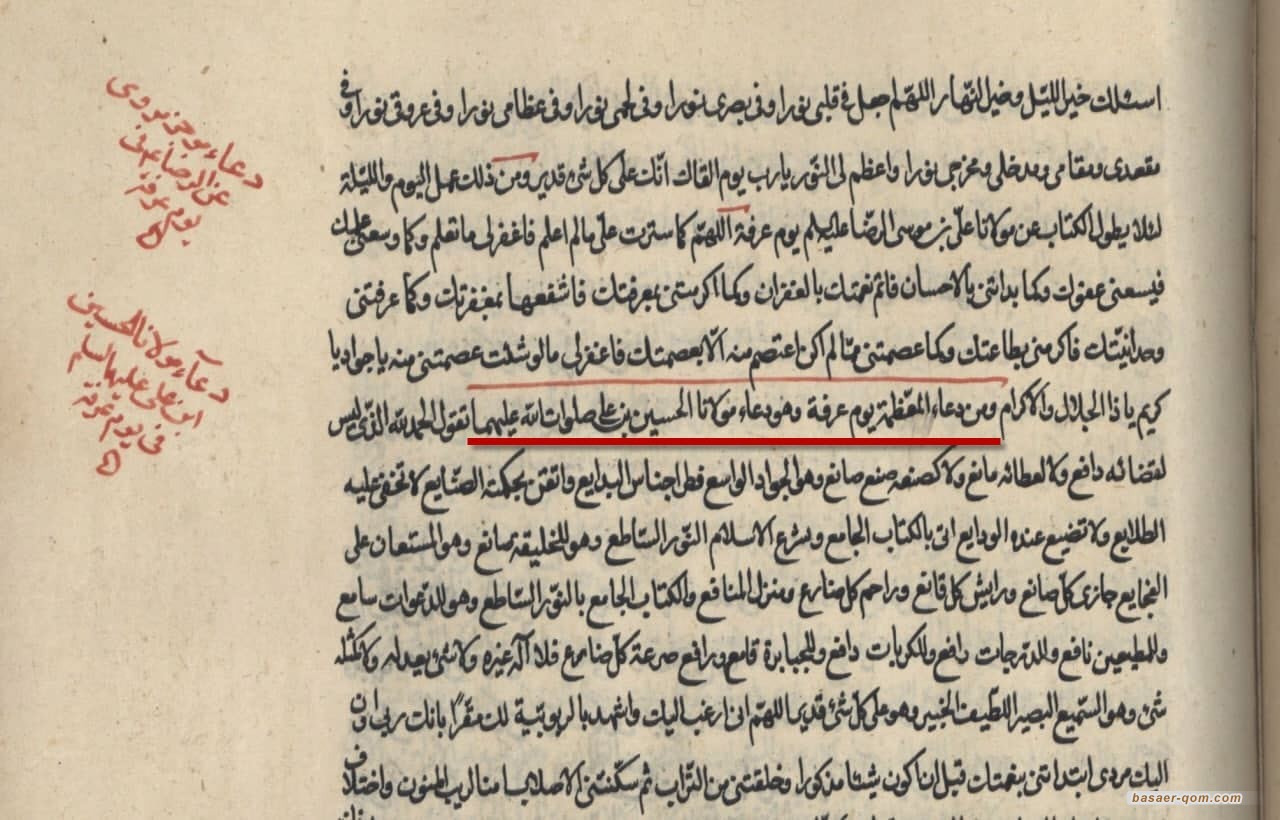 اسئلك خير الليل وخير النهار اللهم اجعل في قلبي نورا وفي بصري نورا وفي لحمي نورا وفي عظامي نورا وفي عروقي نورا وفي
مقعدي ومقامي ومدخلي ومخرجي نورا واعظم لي النور يا رب يوم القاك انك على كل شئ قدير ومن ذلك عمل اليوم والليلة
لئلا يطول الكتاب عن مولانا علي بن موسى الرضا عليه يوم عرفة اللهم كما سترت علي مالم اعلم فاغفر لي ما تعلم وكما وسعني علمك
فيسعني عفوك وكما بداتني بالاحسان فاتم نعمتك بالغفران وكما اكرمتني بمعرفتك فاشفعها بمغفرتك وكما عرفتني
وحدانيتك فاكرمني بطاعتك وكما عصمتني ممالم اكن اعتصم منه الا بعصمتك فاغفر لي مالو شئت عصمتني منه يا جواد يا
كريم يا ذا الجلال والاكرام ومن دعاء المعظمة يوم عرفة وهو دعاء مولانا الحسين بن علي صلوات الله عليهما تقول الحمد لله الذي ليس
لقضائه دافع ولا لعطائه مانع ولا كصنعه صنع صانع وهو الجواد الواسع فطر اجناس البدايع واتقن بحكمته الصنايع لا تخفى عليه
الطلايع ولا تضيع عنده الودايع اتى بالكتاب الجامع وبشرع الاسلام النور الساطع وهو للخليقة صانع وهو المستعان على
الفجايع جازي كل صانع ورايش كل قانع وراحم كل ضارع ومنزل المنافع والكتاب الجامع بالنور الساطع وهو للدعوات سامع
وللمطيعين نافع وللدرجات رافع وللكربات دافع وللجبابرة قامع ورافع صرعة كل ضارع فلا اله غيره ولا شئ يعدله ولا كمثله
شئ وهو السميع البصير اللطيف الخبير وهو على كل شئ قدير اللهم اني ارغب اليك واشهد بالربوبية لك مقرا بانك ربي وان
اليك مردي ابتدأتني بنعمتك قبل ان اكون شيئا مذكورا وخلقتني من التراب ثم سكنتني الاصلاب امنا لريب المنون واختلاف
دعاء موجز مروي
عن الرضا في
يوم عرفة
دعاء مولانا الحسين
ابن علي عليهما السلم
في يوم عرفة
basaer-qom.com